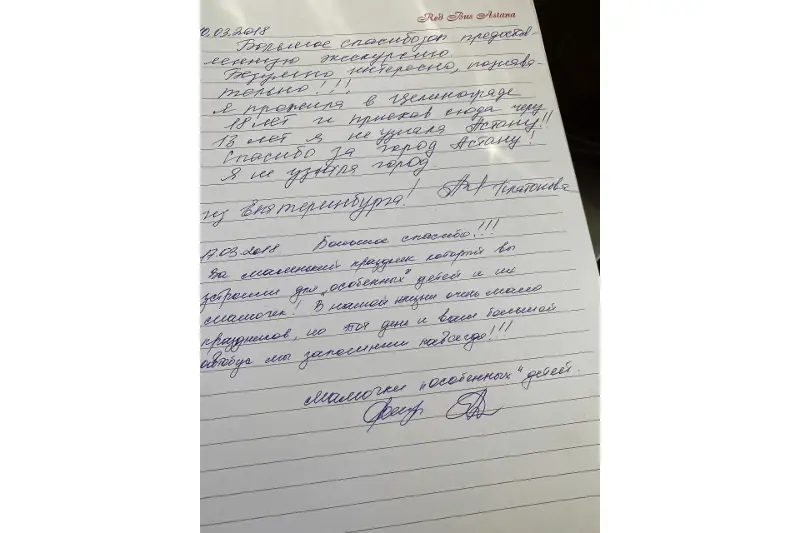 Red Bus Astana
0.03.2018
Большое спасибо за предостав-
ленную экскурсию
Безумно интересно, познава-
тельно!!!
Я прожила в Целинограде
18 лет и приехав сюда через
13 лет я не узнала Астану!!
Спасибо за город Астану!
Я не узнала город.
из Екатеринбурга! Платонова
17.03.2018 Большое спасибо!!!
За маленький праздник который вы
устроили для "особенных" детей и их
мамочек! В нашей жизни очень мало
праздников, но этот день и ваш большой
автобус мы запомним навсегда!!!
Мамочки "особенных" детей.